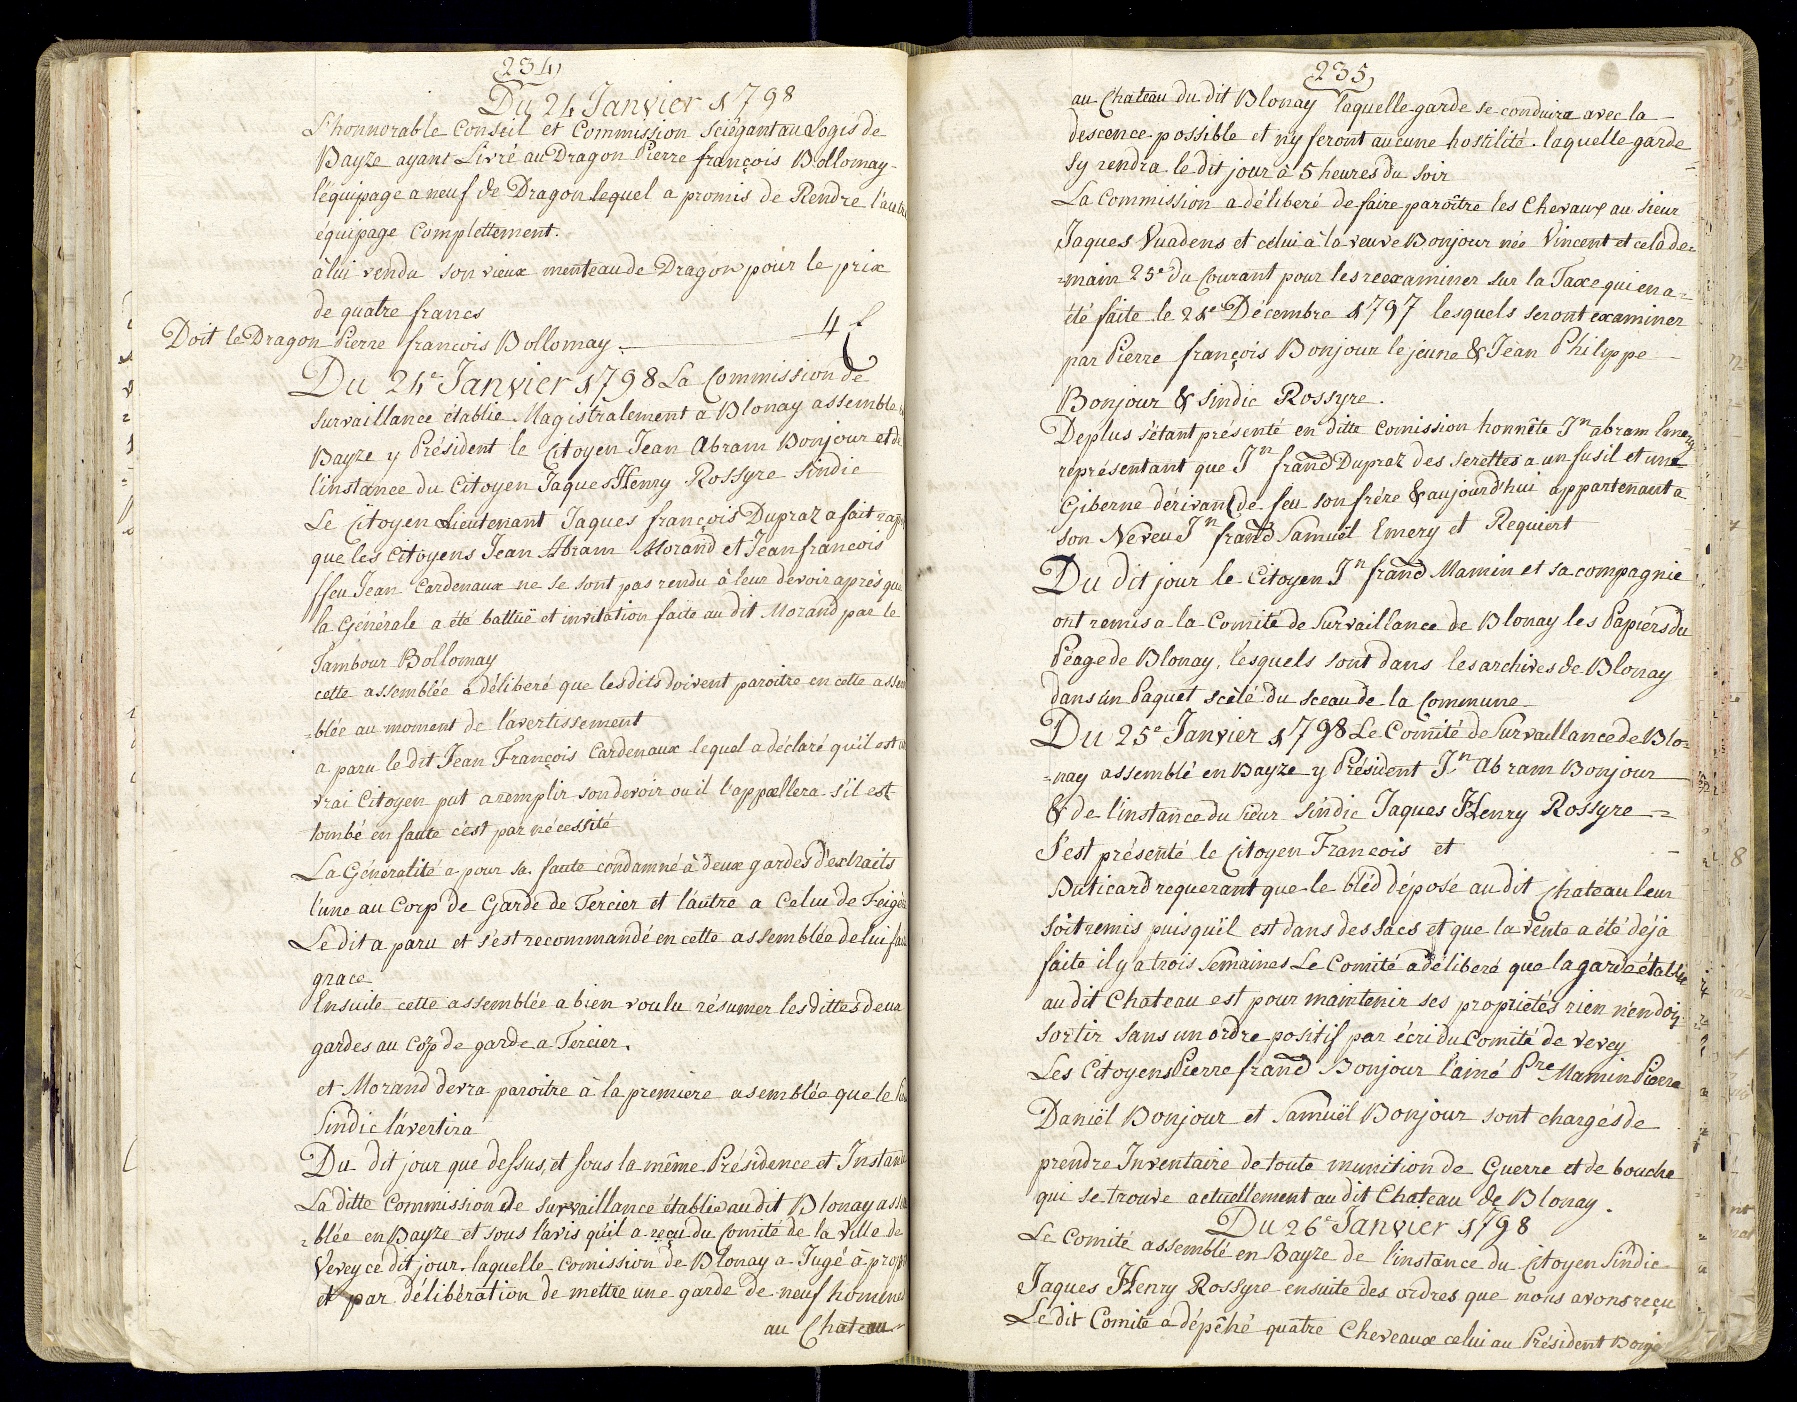 234
Du 24 Janvier 1798
L'honnorable Conseil et Commission sciégant au Logis de
Bayze ayant Livré au Dragon Pierre françois Bollomay
l'équipage a neuf de Dragon lequel a promis de Rendre l'autre
équipage Complettement.
à lui vendu son vieux menteau de Dragon pour le prix
de quatre francs
Doit le Dragon Pierre francois Bollomay. 4 f
Du 24e Janvier 1798 La Commission de
survaillance établie Magistralement a Blonay assemblé
Bayze y Président le Citoyen Jean Abram Bonjour et de
l'instance du Citoyen Jaques Henry Rossyre sindic
Le Citoyen Lieutenant Jaques françois Dupraz a fait rap
que les Citoyens Jean Abram Morand et Jean francois
ffeu Jean Cardenaux ne se sont pas rendu à leur devoir après que
la Générale a été battüe et invitation faite au dit Morand par le
Tambour Bollomay
cette assemblée a déliberé que les dits doivent paroitre en cette assem
=blée au moment de l'avertissement
a paru le dit Jean François Cardenaux lequel a déclaré qu'il est un
vrai Citoyen put a remplir son devoir ou il l'appellera s'il est
tombé en faute c'est par nécessité
La Généralité a pour sa faute condamné à deux gardes d'extraits
l'une au Corp de Garde de Tercier et l'autre a Celui de Feigé
Le dit a paru et s'est recommandé en cette assemblée de lui fai
grace
Ensuite cette assemblée a bien voulu résumer les dittes deux
gardes au Corp de garde a Tercier.
et Morand devra paroitre à la premiere asemblée que le
Sindic l'avertira
Du dit jour que dessus, et sous la même Présidence et Instan
La ditte Commission de survaillance établie au dit Blonay assem
=blée en Bayze et sous l'avis qu'il a reçu du Comité de la ville de
Vevey ce dit jour. laquelle Comission de Blonay a Jugé à prop
et par délibération de mettre une garde de neuf hommes
au Chateau
235
au Chateau du dit Blonay laquelle garde se conduira avec la
descence possible et n'y feront aucune hostilité. laquelle garde
sy rendra le dit jour à 5 heures du soir
La Commission a déliberé de faire paroître les Chevaux au sieur
Jaques Vuadens et celui à la veuve Bonjour née Vincent et cela de=
=main 25e du Courant pour les reexaminer sur la Taxe qui en a
été faite le 21e Décembre 1797 lesquels seront examiner
par Pierre françois Bonjour le jeune & Jean Philippe
Bonjour & sindic Rossyre.
Deplus s'étant présenté en ditte Comission honnête Jn abram Emery
représentant que Jn frand Dupraz des serettes a un fusil et une
Giberne dérivant de feu son frère & aujourd'hui appartenant a
son Neveu Jn frand Samuël Emery et Requiert
Du dit jour le Citoyen Jn frand Mamin et sa compagnie
ont remis a la Comité de Survaillance de Blonay les Papiérs du
Péage de Blonay, lesquels sont dans les archives de Blonay
dans un Paquet scèlé du sceau de la Commune
Du 25e Janvier 1798 Le Comité de Survaillance de Blo=
=nay assemblé en Bayze y Président Jn Abram Bonjour
& de l'instance du sieur sindic Jaques Henry Rossyre =
S'est présenté le Citoyen Francois et
Duticard requerant que le bléd déposé au dit Chateau leur
soit remis puisqu'il est dans des sacs et que la vente a été déjà
faite il y a trois semaines Le Comité a déliberé que la garde établie
au dit Chateau est pour maintenir ses proprietés rien n'en doi
sortir sans un ordre positif par écri du Comité de Vevey
Les Citoyens Pierre frand Bonjour l'ainé Pre Mamin Pierre
Daniël Bonjour et Samuël Bonjour sont chargés de
prendre Inventaire de toute munition de Guerre et de bouche
qui se trouve actuellement au dit Chateau de Blonay.
Du 26e Janvier 1798
Le Comité assemblé en Bayze de l'instance du Citoyen Sindic
Jaques Henry Rossyre ensuite des ordres que nous avons reçu
Le dit Comité a dépêhé quatre Cheveaux celui au Président Bonjo